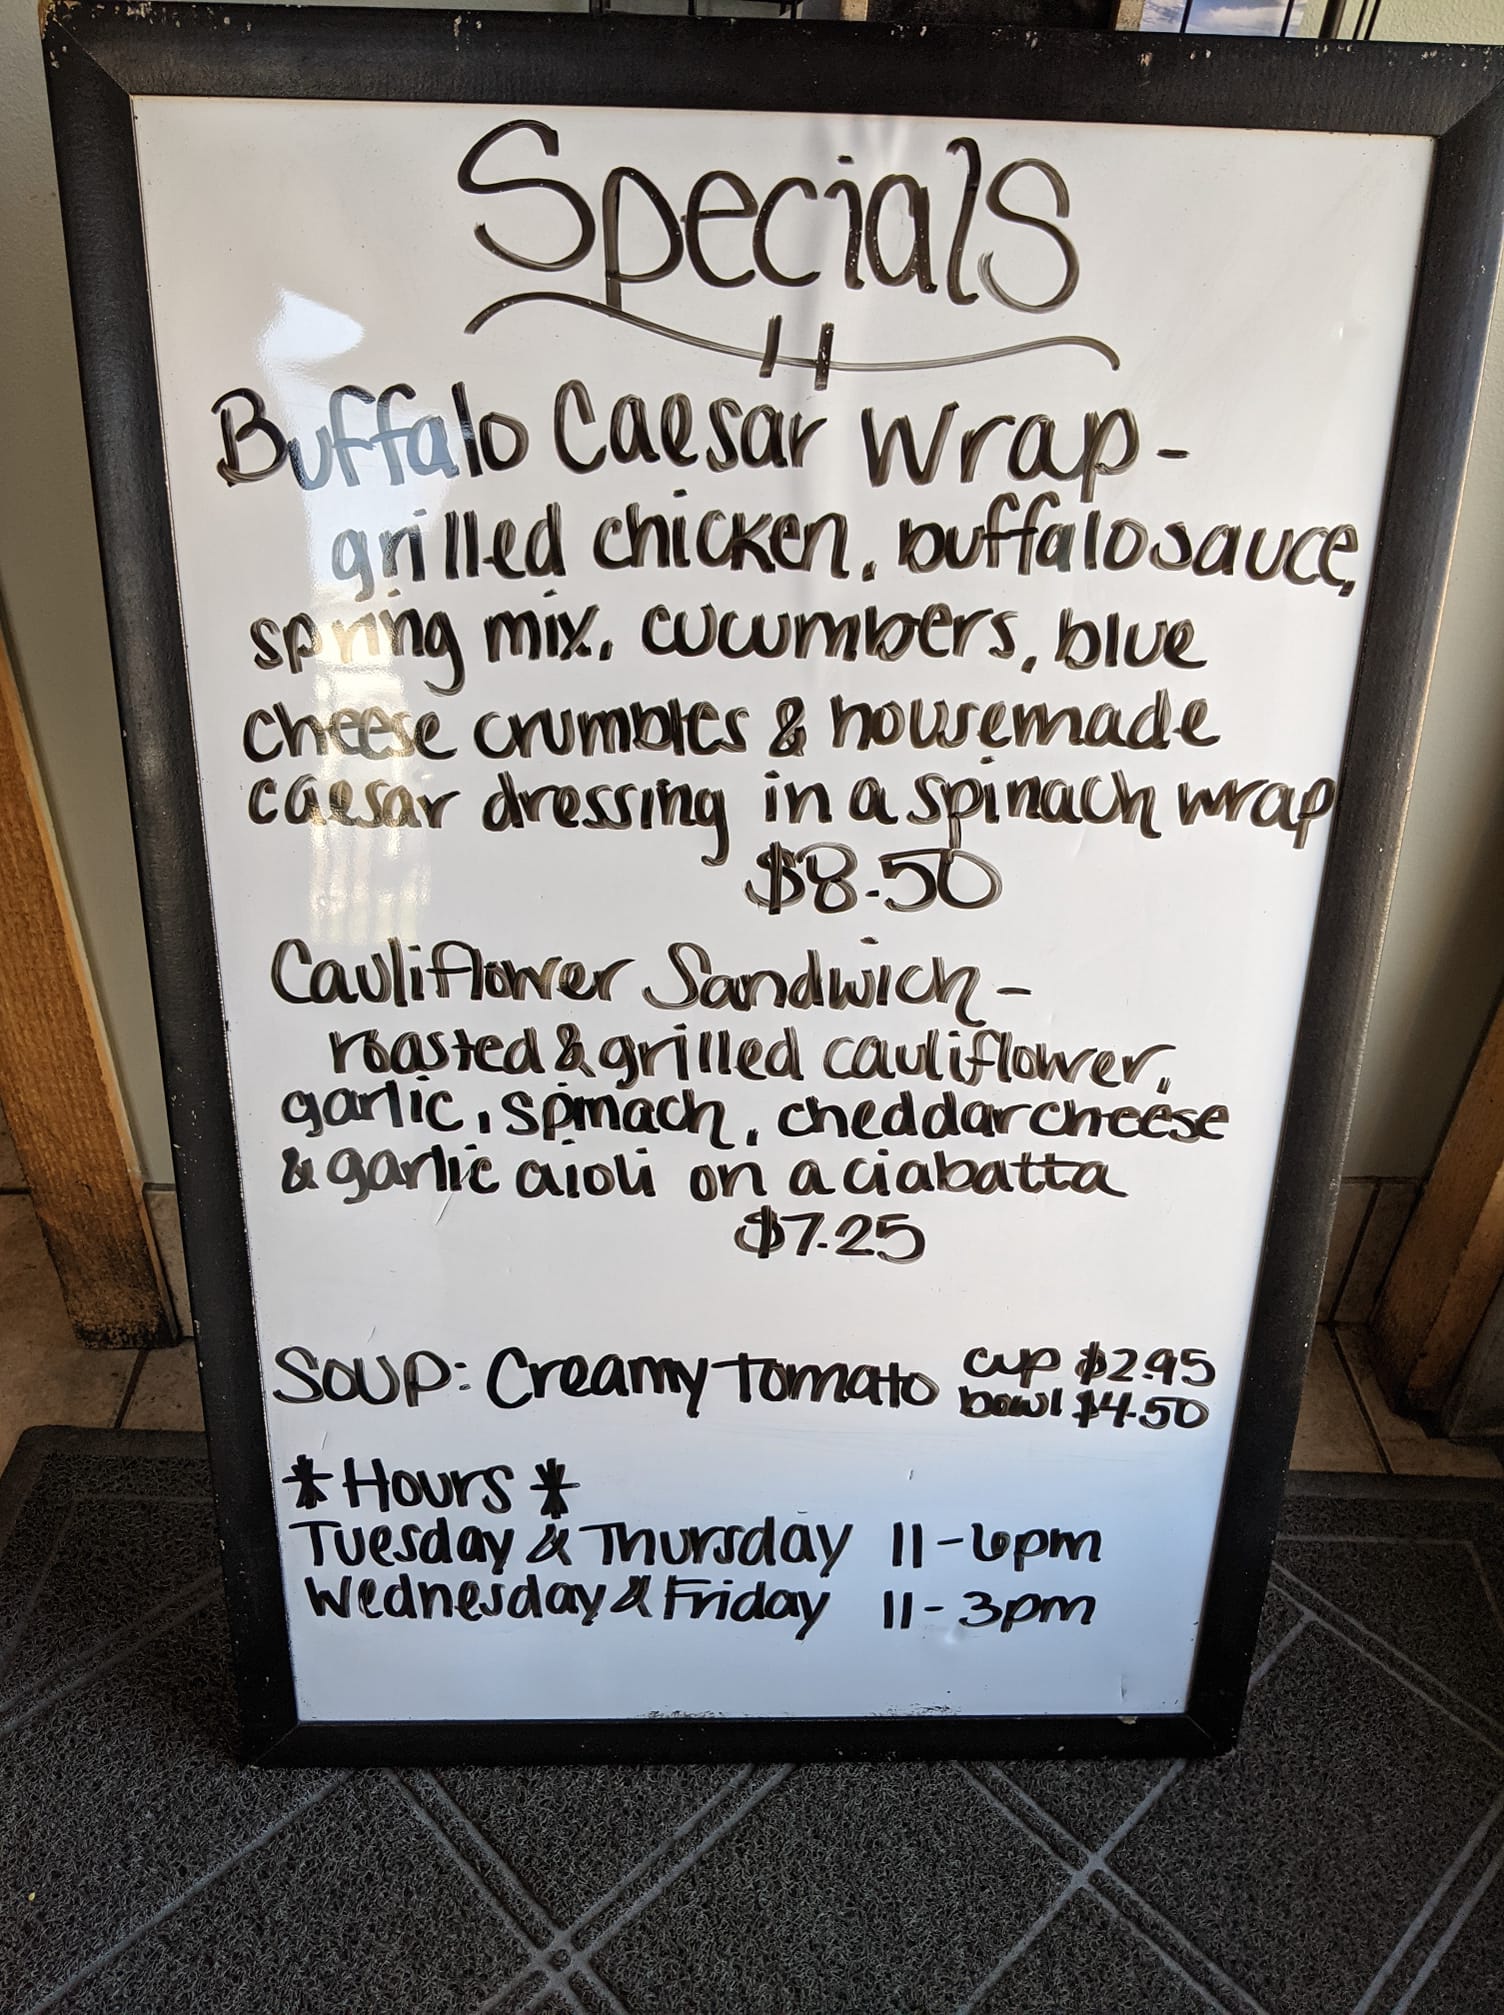 Specials
Buffalo Caesar Wrap -
grilled chicken, buffalo sauce,
spring mix, cucumbers, blue
cheese crumbles & housemade
caesar dressing in a spinach wrap
$8.50
Cauliflower Sandwich -
roasted & grilled cauliflower,
garlic, spinach, cheddar cheese
& garlic aioli on a ciabatta
$7.25
Soup: Creamy Tomato cup $2.95
bowl $4.50
*Hours*
Tuesday & Thursday 11-6pm
Wednesday & Friday 11-3pm